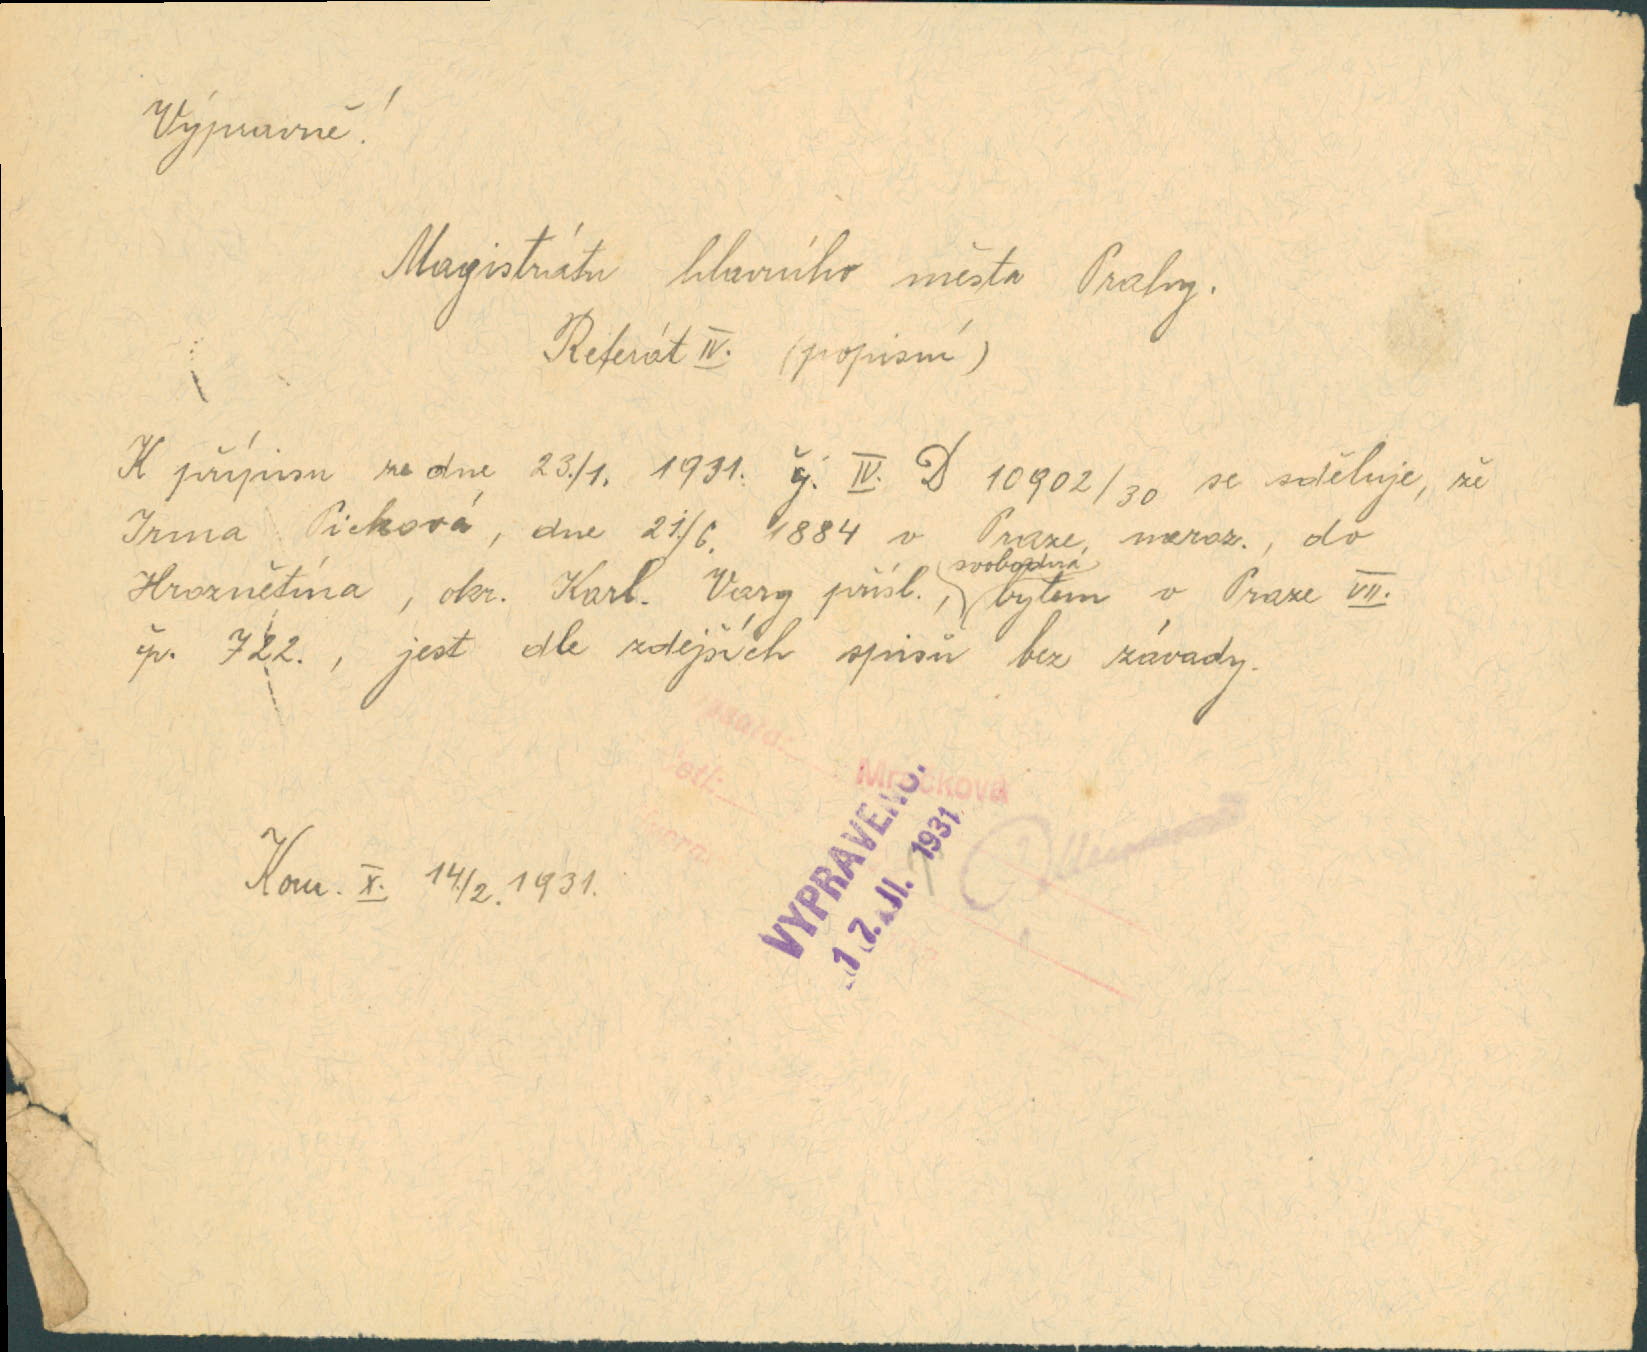 Výpravně!
Magistrátu hlavního města Prahy.
Referát IV. (popisní)
K přípisu ze dne 23./1. 1931. čj. IV. D 10902/30 se sděluje, že
Irma Picková, dne 21./6. 1884 v Praze, naroz., do
svobodná
Hroznětína, okr. Karl. Vary přísl., bytem v Praze VII.
čp. 722., jest dle zdejších spisů bez závady.
Kom. X. 14./2. 1931.
VYPRAVENO.
17. II. 1931